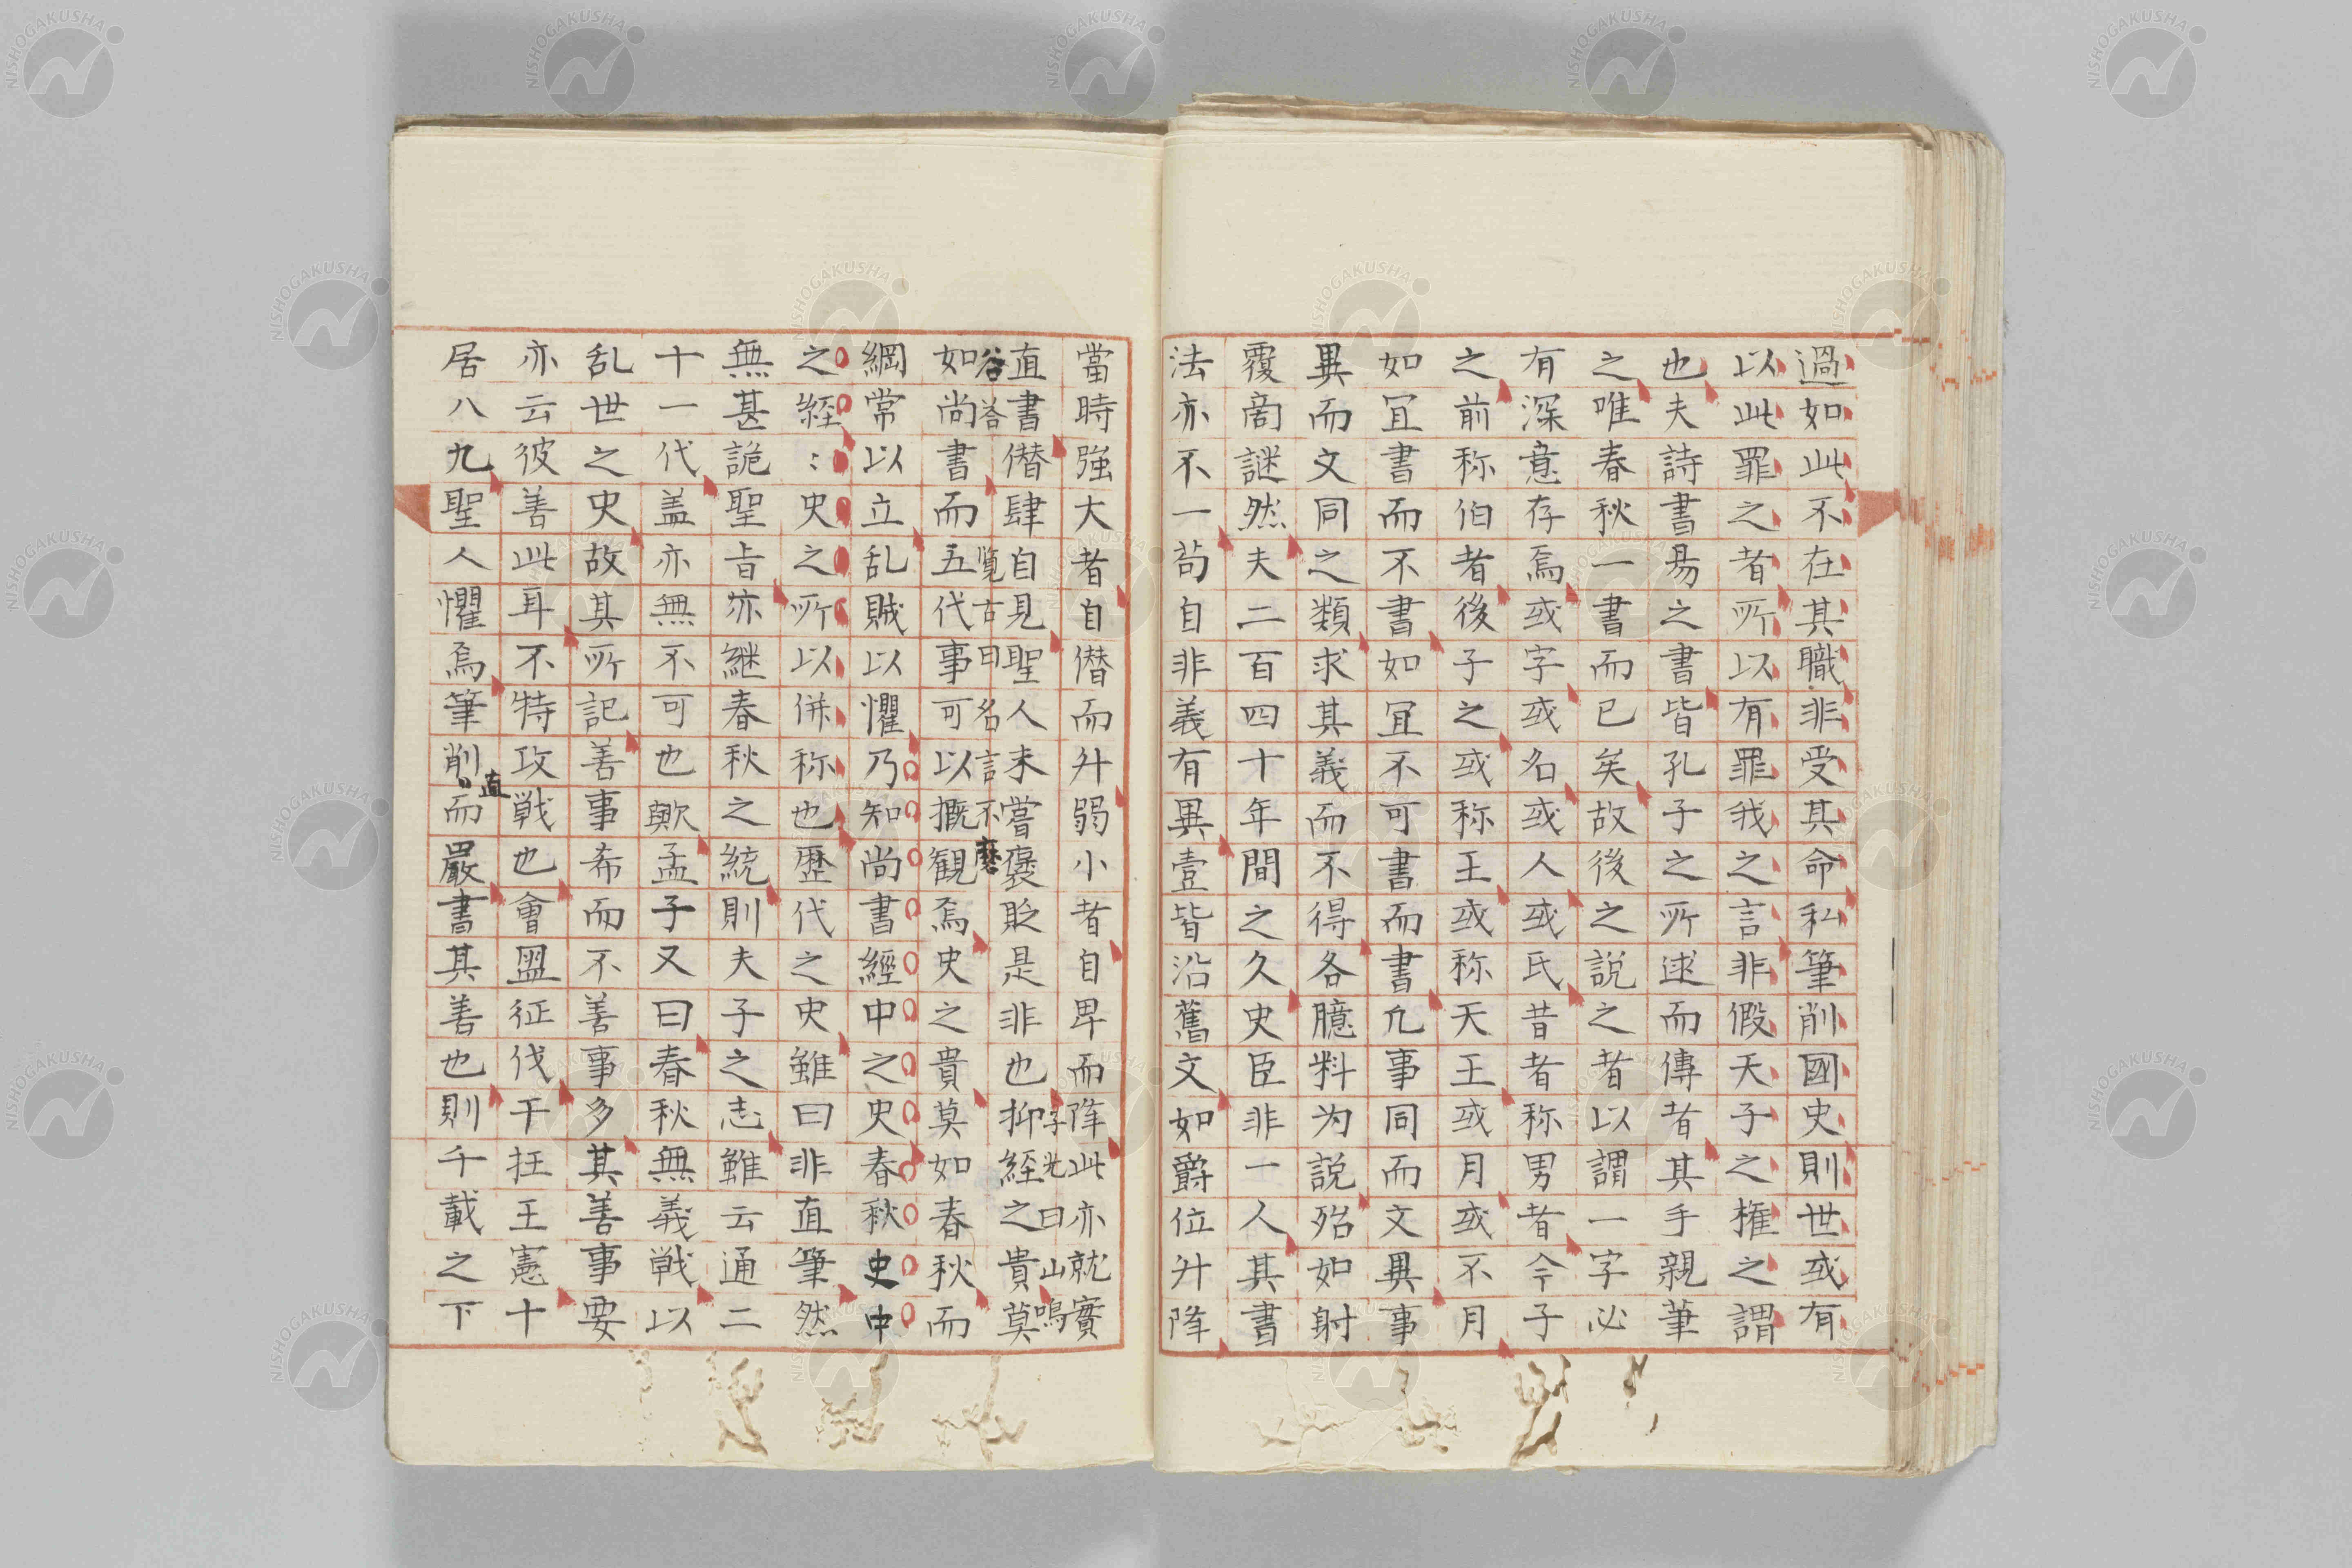 過如此不在其職非受其命私筆削國史則世或有
以此罪之者所以有罪我之言非假天子之権之謂
也夫詩書易之書皆孔子之所述而傳者其手親筆
之唯春秋一書而已矣故後之説之者以謂一字必
有深意存焉或字或名或人或氏昔者称男者今子
之前称伯者後子之或称王或称天王或月或不月
如宜書而不書如宜不可書而書凢事同而文異事
異而文同之類求其義而不得各臆料为説殆如射
覆啇謎然夫二百四十年間之久史臣非一人其書
法亦不一苟自非義有異壹皆沿舊文如爵位升降
當時強大者自僭而升弱小者自卑而降此亦就實
字光曰山鳴
直書僭肆自見聖人未嘗褒貶是非也抑經之貴莫
谷荅覧古曰名言不磨
如尚書而五代事可以概観焉史之貴莫如春秋而
綱常以立乱賊以懼乃知尚書經中之史春秋史中
之経〻史之所以併称也歴代之史雖曰非直筆然
無甚詭聖旨亦継春秋之統則夫子之志雖云通二
十一代盖亦無不可也歟孟子又曰春秋無義戦以
乱世之史故其所記善事希而不善事多其善事要
亦云彼善此耳不特攻戦也會盟征伐干抂王憲十
居八九聖人懼焉筆削而嚴書其善也則千載之下
直
NISHOGAKUSHA